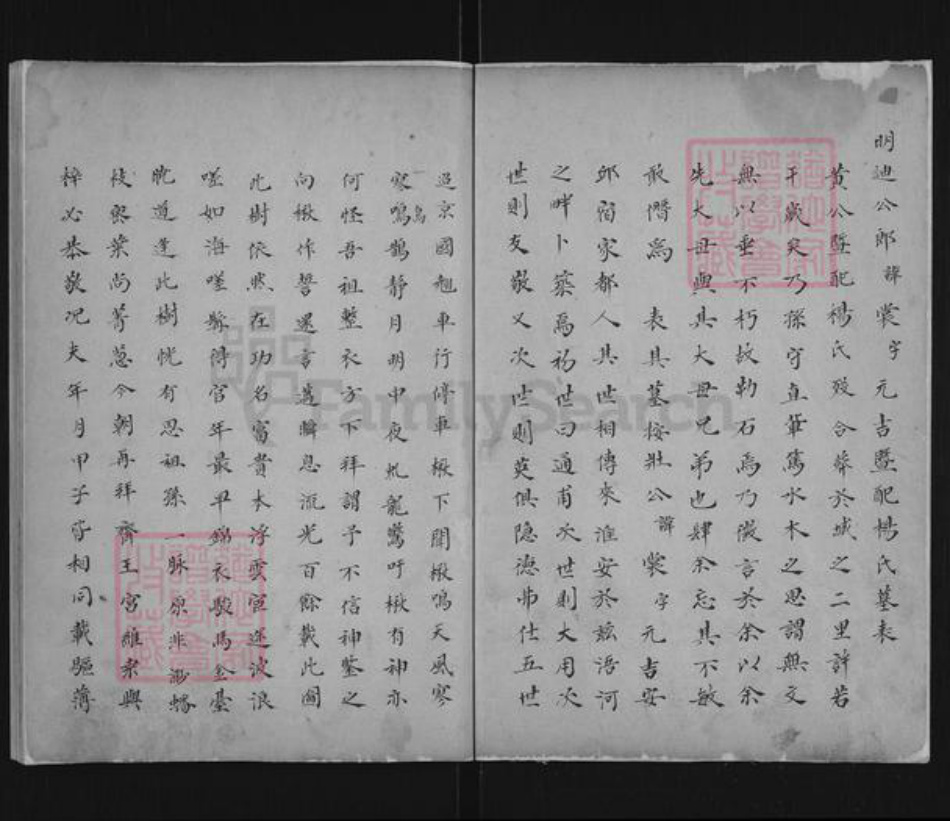 明迪公郎諱裳字元吉暨配楊氏墓表
黄公暨配楊氏歿合葬於城之二里許若
干歲矣乃孫守直葷篤水木之思謂無文
無以垂不朽故勒石焉乃徵言於余以余
先大母與其大母兄弟也肆余忘其不敏
敢僭爲 表其墓按壯公諱裳字元吉安
邱宿家都人其世相傳來淮安於兹浯河
之畔卜築焉初世曰通甫次世則大用次
世則友敬又次世則英俱隐德弗仕五世
逕京國趐車行停車楸下聞楸鳴天風寒
寒鳴鵲静月明中夜虬龍驚吁楸有神亦
何怪吾祖整衣方下拜謂予不信神鑒之
向楸作誓還言邁瞬息流光百餘載此園
此樹依然在功名富貴本浮雲宦達波浪
嗟如海嗟縣得官年最早錦衣駿馬金臺
晩道逢此樹恍有思祖孫一脉原非
枝際葉尚菁葱今朝再拜 齊王宫維桑與
梓必恭敬况夫年月甲子皆相同載驅薄
烏
FamilySearch